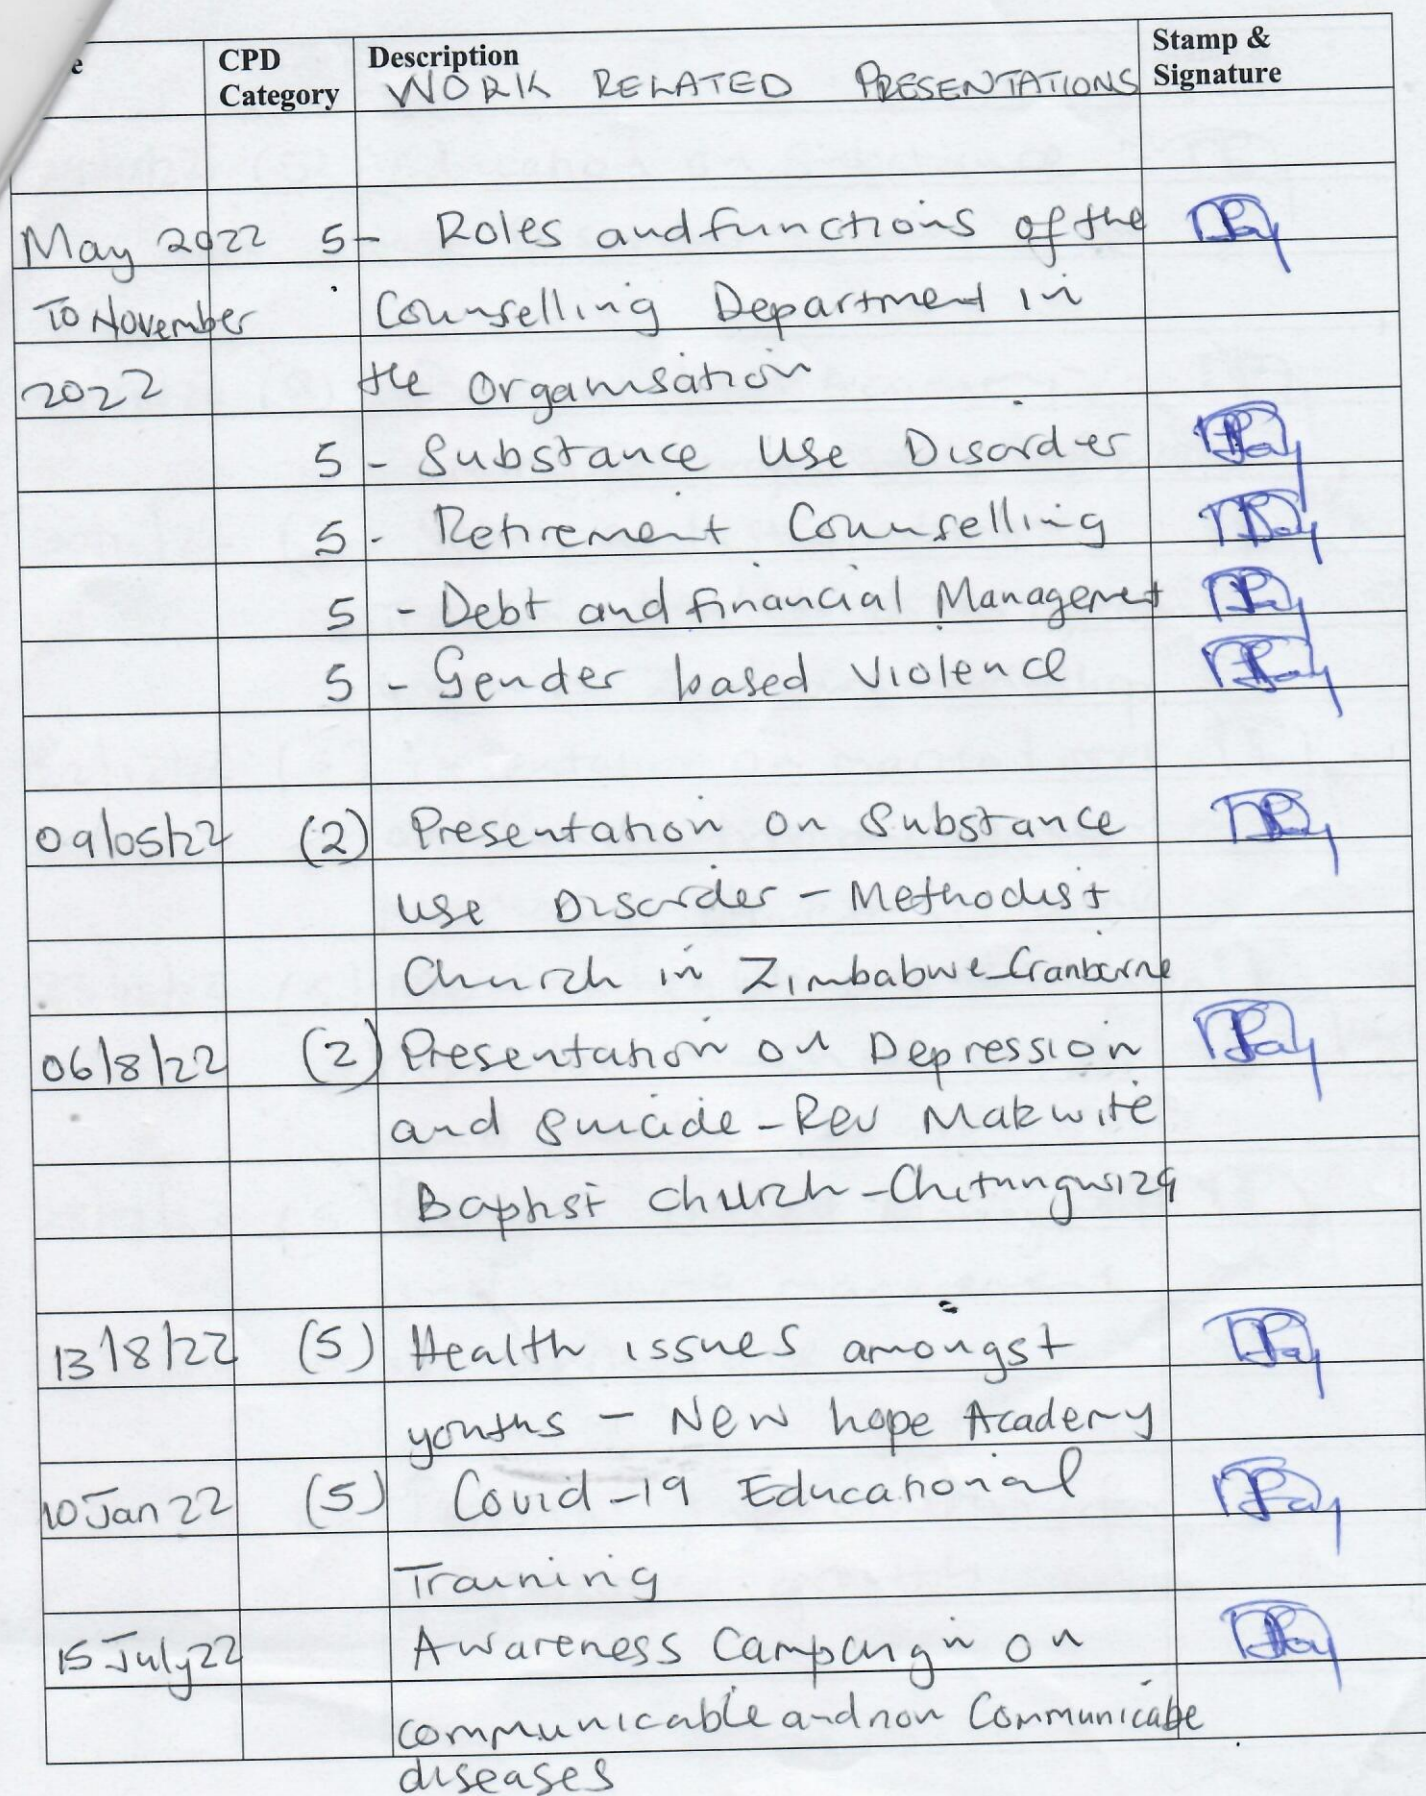 e CPD Description Stamp &
Category WORK RELATED PRESENTATIONS Signature
May 2022 5 - Roles and functions of the
To November Counselling Department in
2022 the Organisation
5 - Substance Use Disorder
5 - Retirement Counselling
5 - Debt and financial Management
5 - Gender based Violence
09/05/22 (2) Presentation on Substance
use Disorder - Methodist
Church in Zimbabwe - Cranborne
06/8/22 (2) Presentation on Depression
and Suicide - Rev Makwite
Baptist church - Chitungwiza
13/8/22 (5) Health issues amongst
youths - New hope Academy
10 Jan 22 (5) Covid-19 Educational
Training
15 July 22 Awareness Campaign on
communicable and non Communicabe
diseases